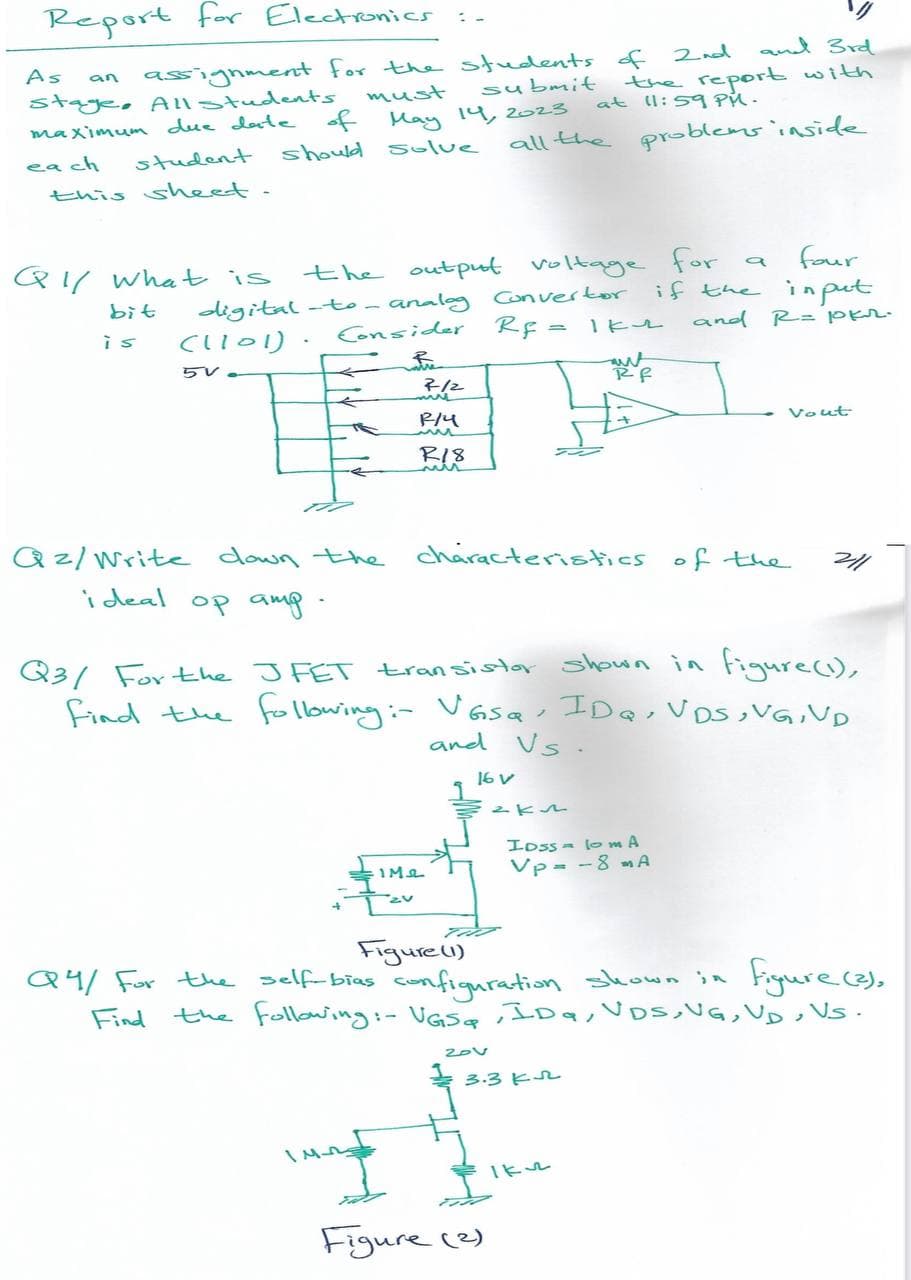 Report for Electronics :-
1//
As an assignment for the students of 2nd and 3rd
stage. All students must submit the report with
maximum due date of May 14, 2023 at 11:59 PM.
each student should solve all the problems inside
this sheet.
Q1/ What is the output voltage for a four
bit digital-to-analog Convertor if the input
is (1101). Consider Rf = 1kΩ and R = 10kΩ.
5V
R
Rf
R/2
R/4
Vout
R/8
Q2/ Write down the characteristics of the
2//
ideal op amp.
Q3/ For the JFET transistor shown in figure(1),
find the following:- VGSQ, IDQ, VDS, VG, VD
and VS.
16V
2kΩ
IDSS = 10mA
VP = -8 mA
1MΩ
-
+
2V
Figure(1)
Q4/ For the self-bias configuration shown in figure(2),
Find the following:- VGSQ, IDQ, VDS, VG, VD, VS.
20V
3.3 KΩ
1MΩ
1KΩ
Figure (2)